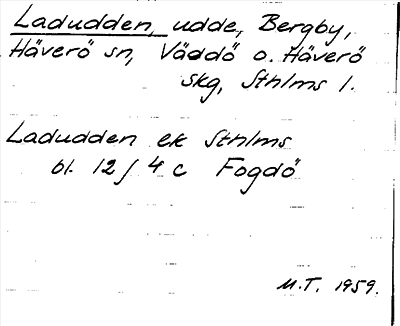 Ladudden, udde, Bergby,
Häverö sn, Väddö o. Häverö
skg, Sthlms l.
Ladudden ek Sthlms
bl. 12 f 4 c Fogdö
M.T. 1959.